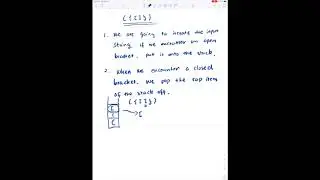 ( { [ ] } )
1. We are going to iterate the input
string. If we encounter an open
bracket, put it onto the stack.
2. When we encounter a closed
bracket. We pop the top item
of the stack off.
( { [ ] } )
[